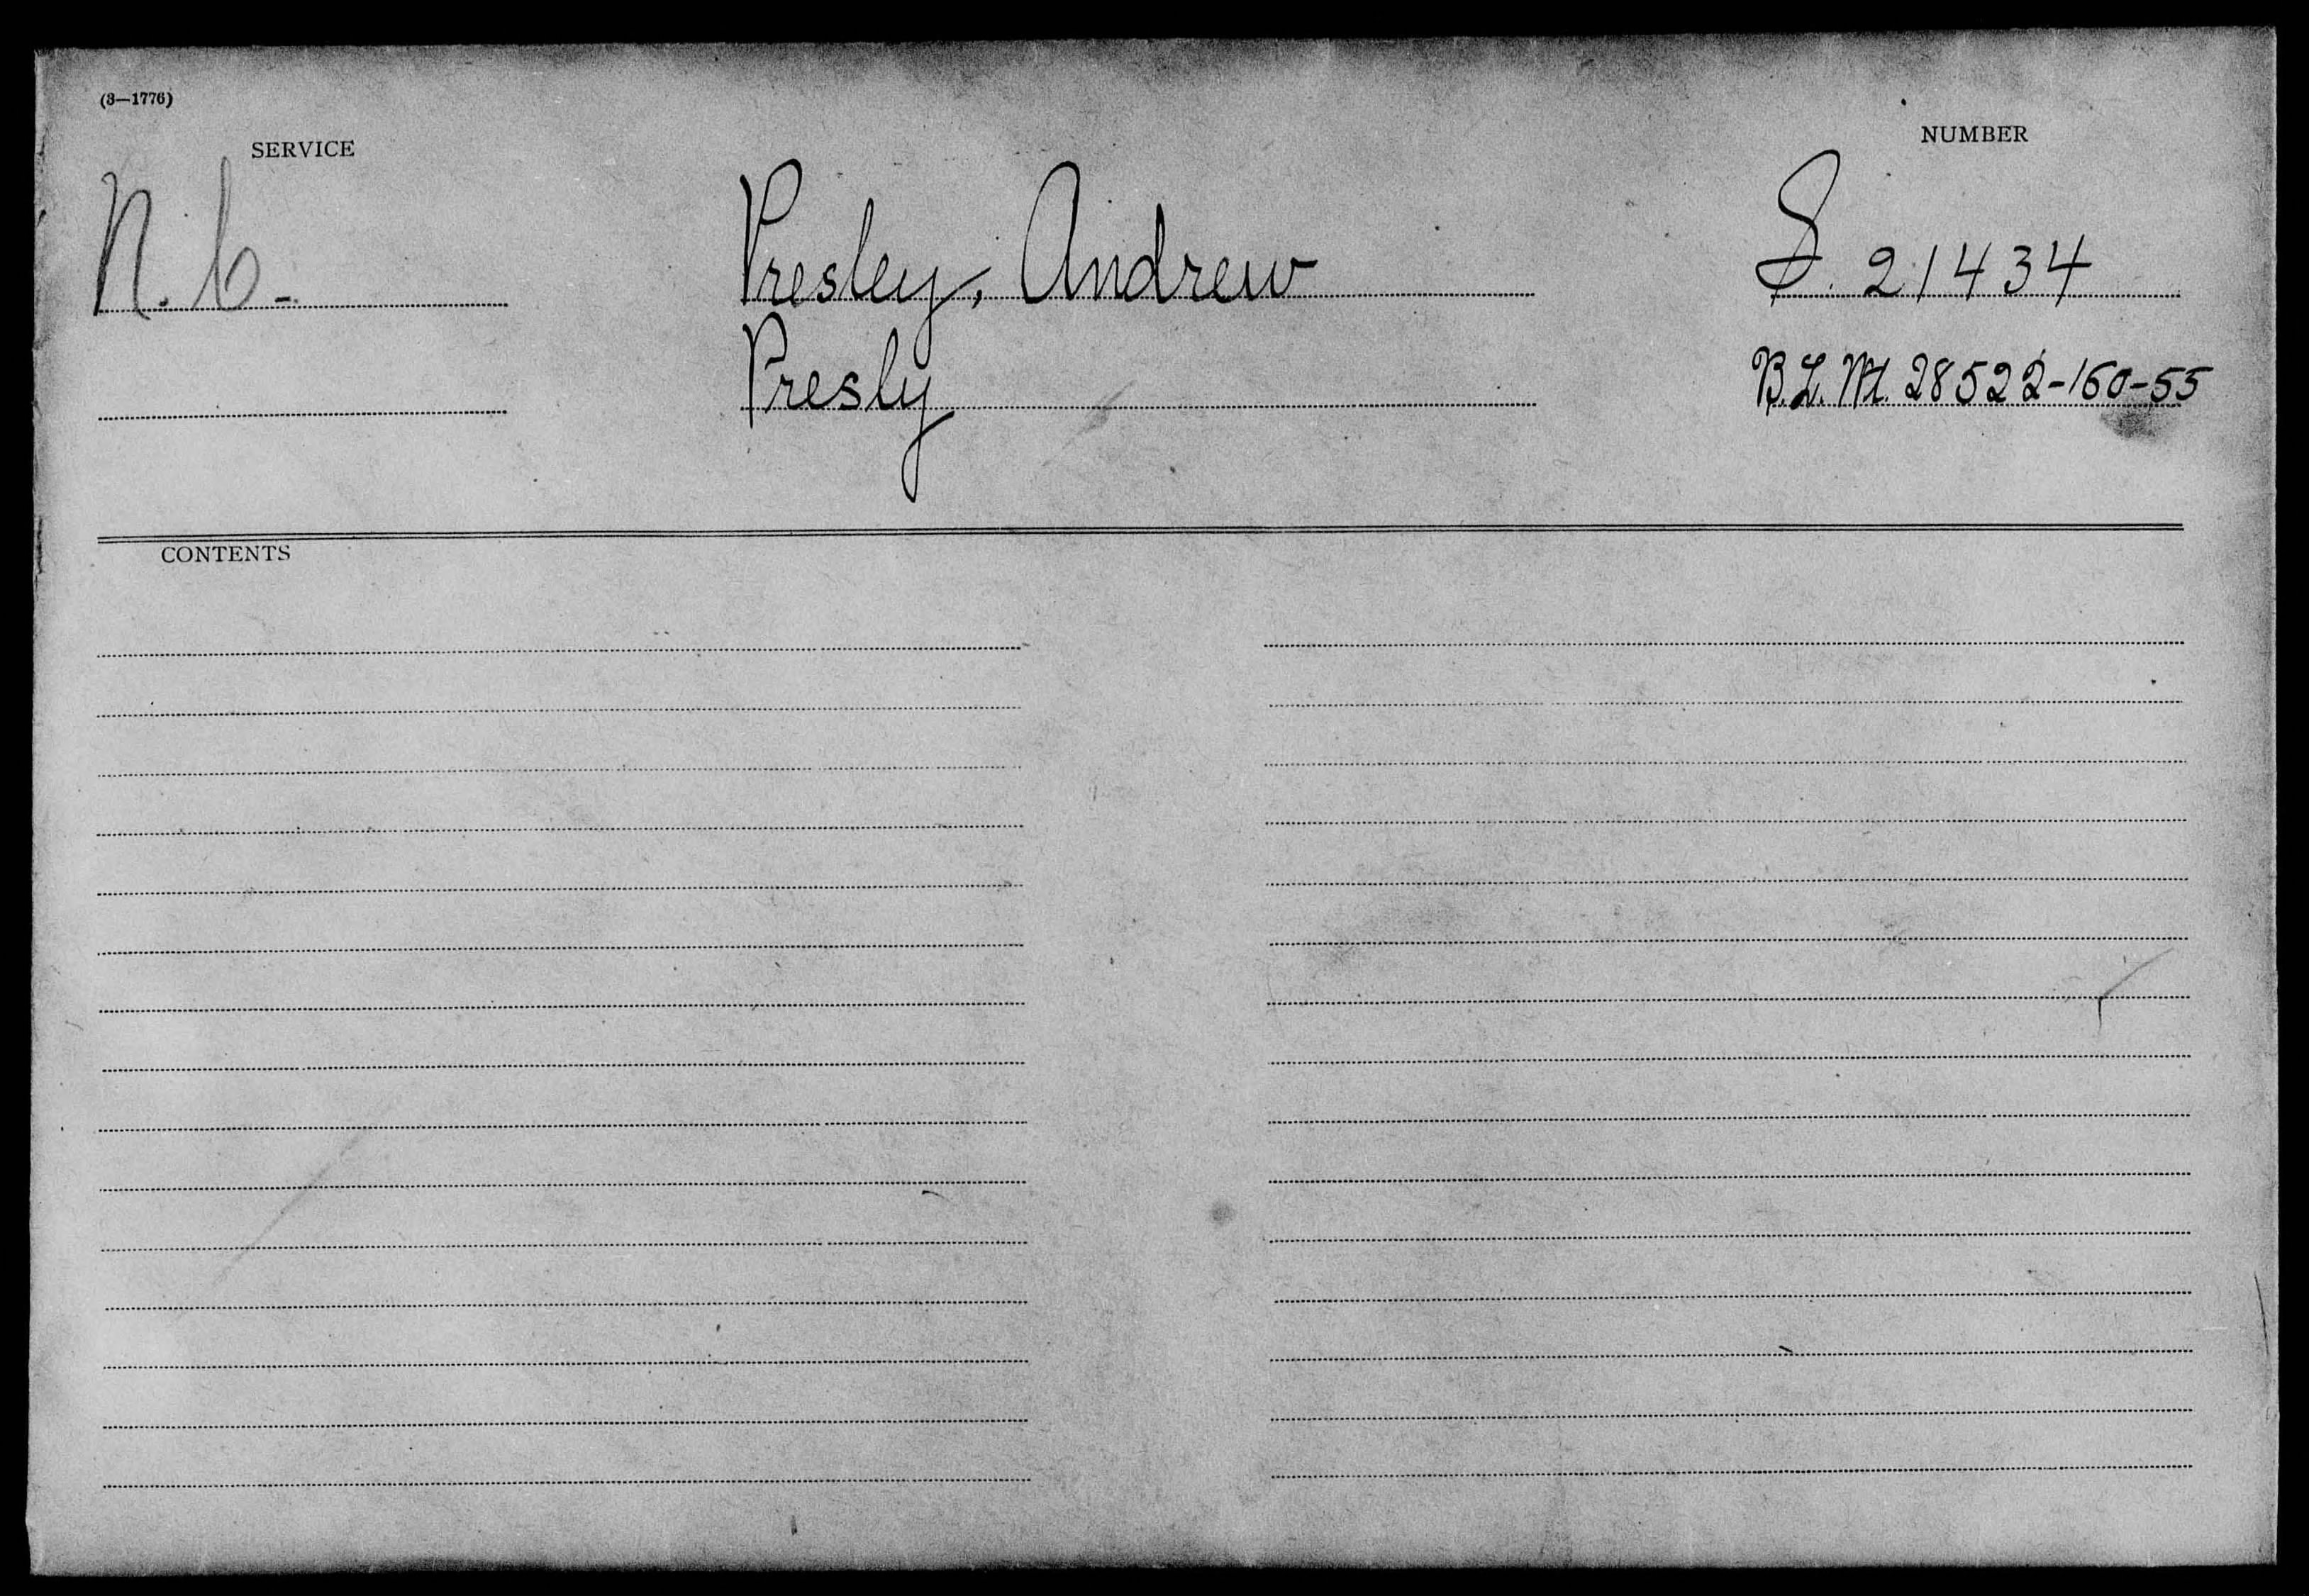 (3—1776)
SERVICE
NUMBER
N.C.
Presley, Andrew
S. 21434
Presly
B.L.Wt. 28522-160-55
CONTENTS